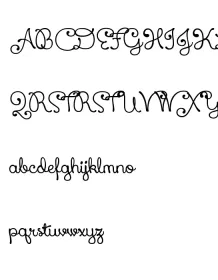 ABCDEFGHIJK
QRSTRSTUVWXY
abcdefghijklmno
pqrstuvwxyz